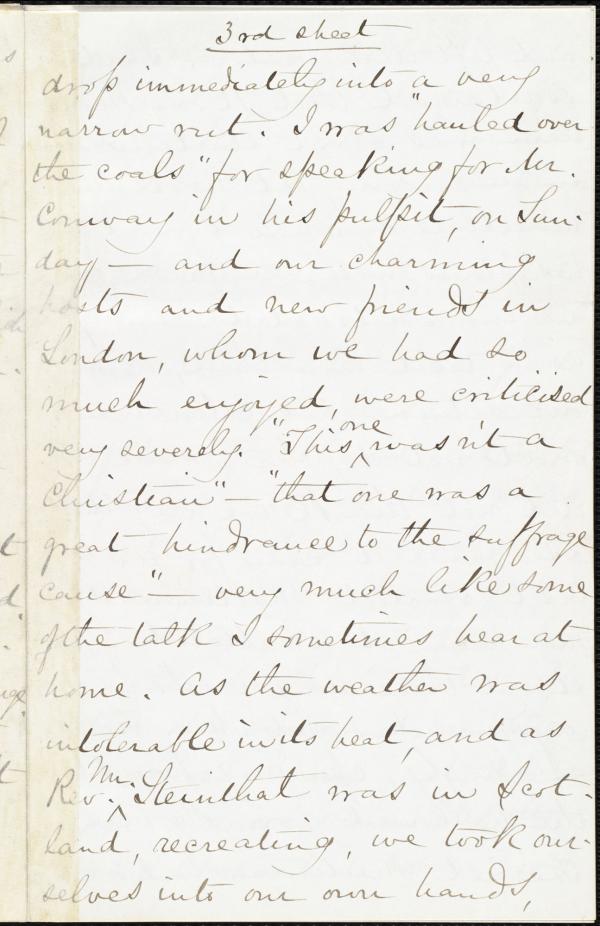 3rd sheet
drop immediately into a very
narrow rut. I was "hauled over
the coals" for speaking for Mr.
Conway in his pulpit, on Sun-
day — and our charming
hosts and new friends in
London, whom we had so
much enjoyed, were criticised
very severely. "This one wasn't a
Christian" — "that one was a
great hindrance to the suffrage
cause" — very much like some
of the talk I sometimes hear at
home. As the weather was
intolerable in its heat, and as
Rev. Mr. Steinthal was in Scot-
land, recreating, we took our-
selves into our own hands,